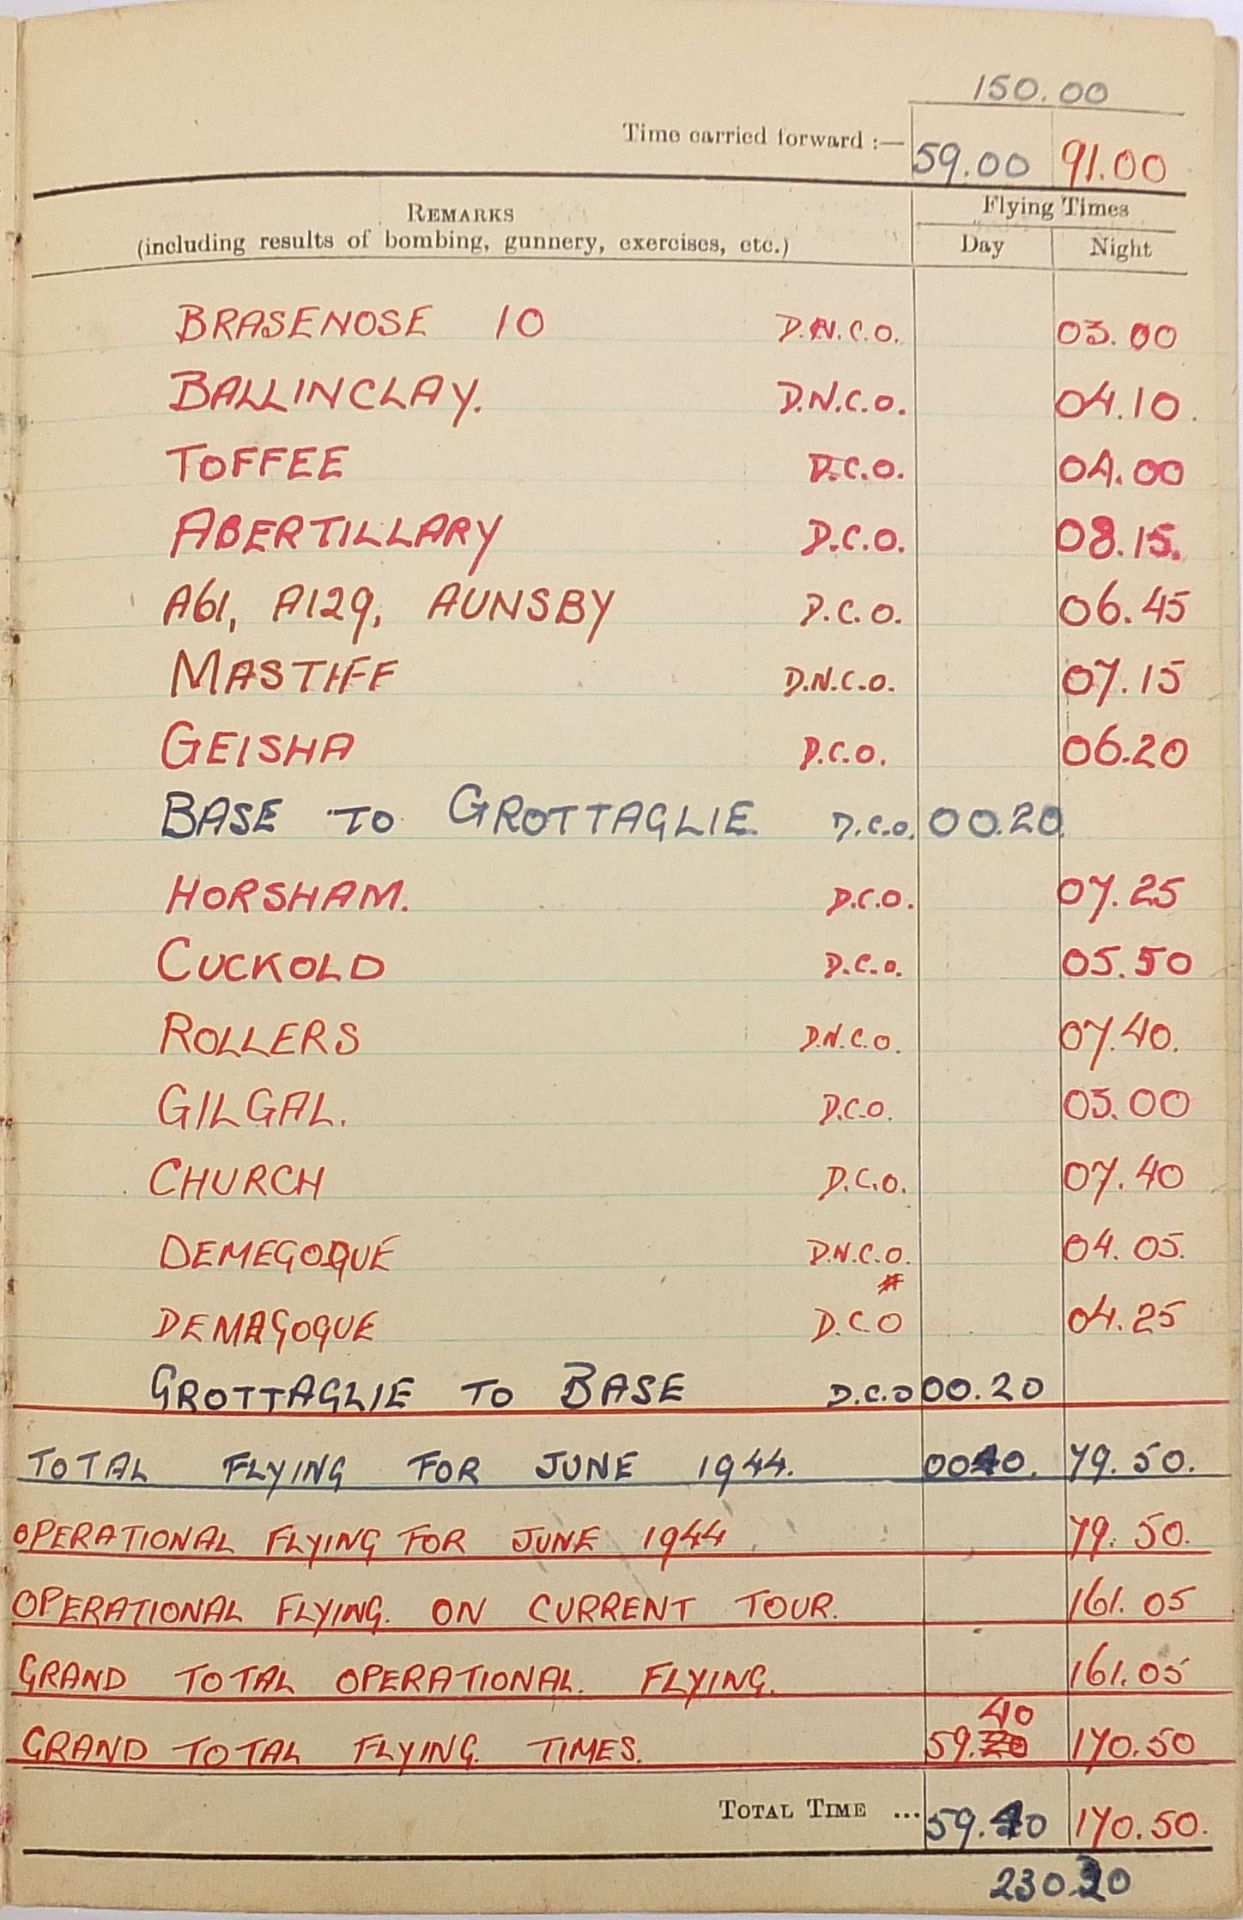 150.00
Time carried forward :— 59.00 91.00
REMARKS Flying Times
(including results of bombing, gunnery, exercises, etc.) Day Night
BRASENOSE 10 D.N.C.O. 03.00
BALLINCLAY. D.N.C.O. 04.10.
TOFFEE D.C.O. 04.00
ABERTILLARY D.C.O. 08.15.
A61, A129, AUNSBY D.C.O. 06.45
MASTIFF D.N.C.O. 07.15
GEISHA D.C.O. 06.20
BASE TO GROTTAGLIE. D.C.O. 00.20.
HORSHAM. D.C.O. 07.25
CUCKOLD D.C.O. 05.50
ROLLERS D.N.C.O. 07.40.
GILGAL. D.C.O. 03.00
CHURCH D.C.O. 07.40
DEMEGOQUE D.N.C.O. 04.05.
DEMAGOGUE D.C.O 04.25
GROTTAGLIE TO BASE D.C.O 00.20
TOTAL FLYING FOR JUNE 1944. 0040. 79.50.
OPERATIONAL FLYING FOR JUNE 1944 79.50.
OPERATIONAL FLYING. ON CURRENT TOUR. 161.05
GRAND TOTAL OPERATIONAL. FLYING. 161.05
40
GRAND TOTAL FLYING. TIMES. 59.20 170.50
TOTAL TIME ... 59.40 170.50.
230.30